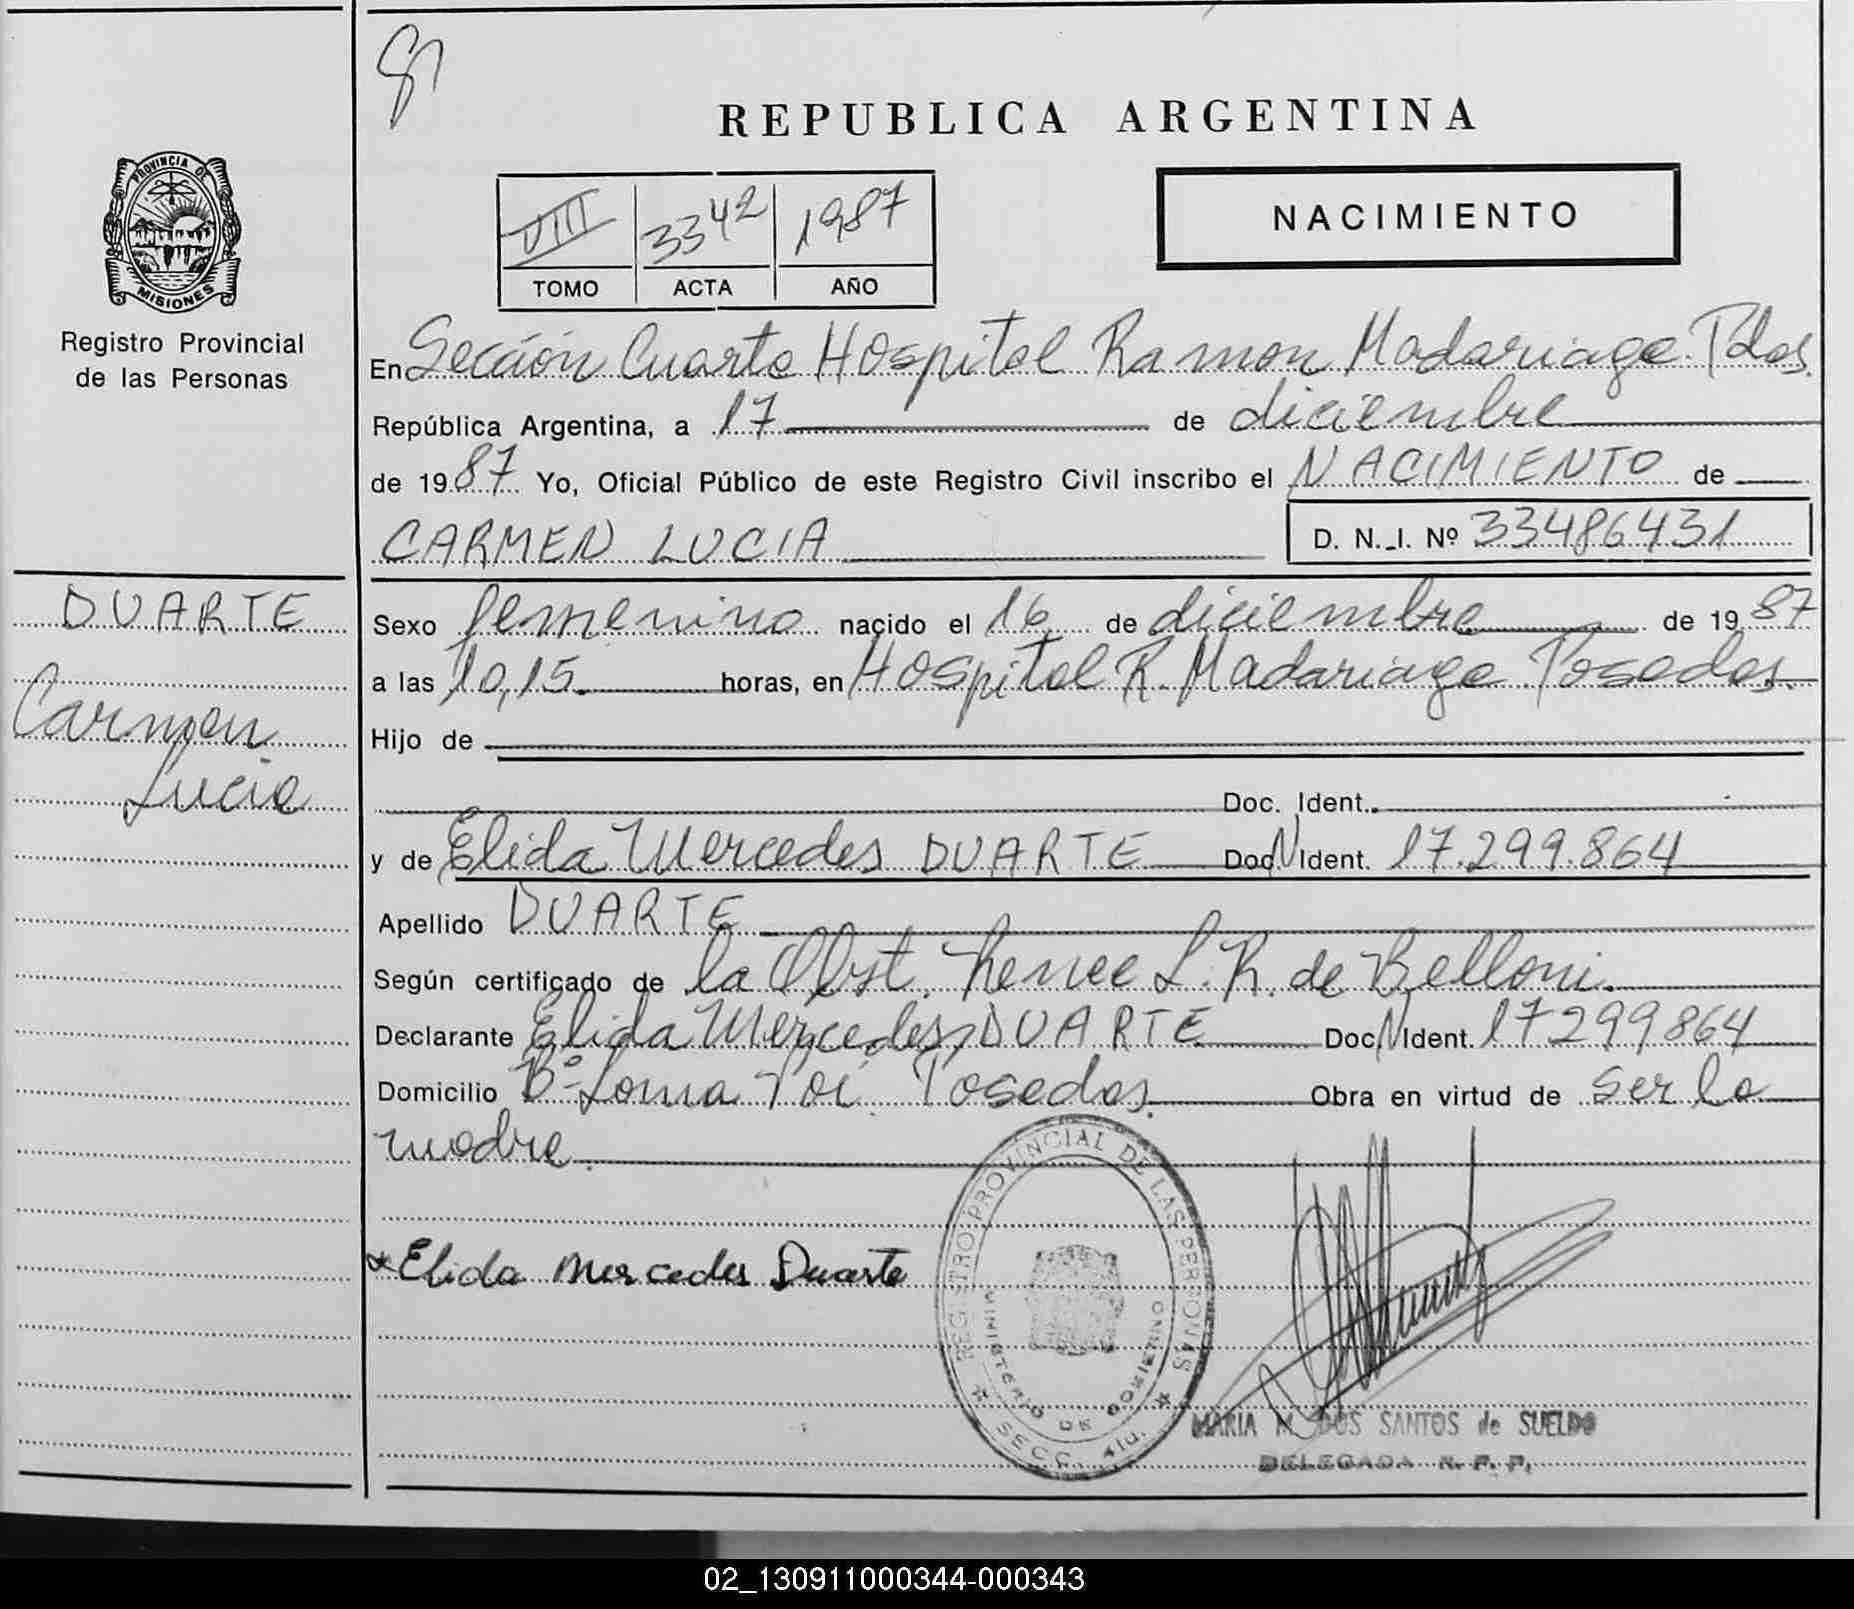 87
REPUBLICA ARGENTINA
PROVINCIA DE MISIONES
Registro Provincial
de las Personas
VIII 3342 1987
TOMO ACTA AÑO
NACIMIENTO
En Sección Cuarta Hospital Ramon Madariaga. Pdas.
República Argentina, a 17 de diciembre
de 1987 Yo, Oficial Público de este Registro Civil inscribo el NACIMIENTO de
CARMEN LUCIA D. N. I. Nº 33486431
DUARTE
Carmen
Lucia
Sexo femenino nacido el 16 de diciembre de 1987
a las 10,15. horas, en Hospital R. Madariaga Posadas.
Hijo de
Doc. Ident.
y de Elida Mercedes DUARTE Doc. N Ident. 17.299.864
Apellido DUARTE
Según certificado de la Obst. Renee L. R. de Belloni.
Declarante Elida Mercedes DUARTE Doc. N Ident. 17299864
Domicilio Bº Loma Poi Posadas. Obra en virtud de ser la
madre.
Elida Mercedes Duarte
REGISTRO PROVINCIAL DE LAS PERSONAS
MINISTERIO DE GOBIERNO
SECC. 4ta.
MARIA M. DOS SANTOS de SUELDO
DELEGADA R. P. P.
02_130911000344-000343